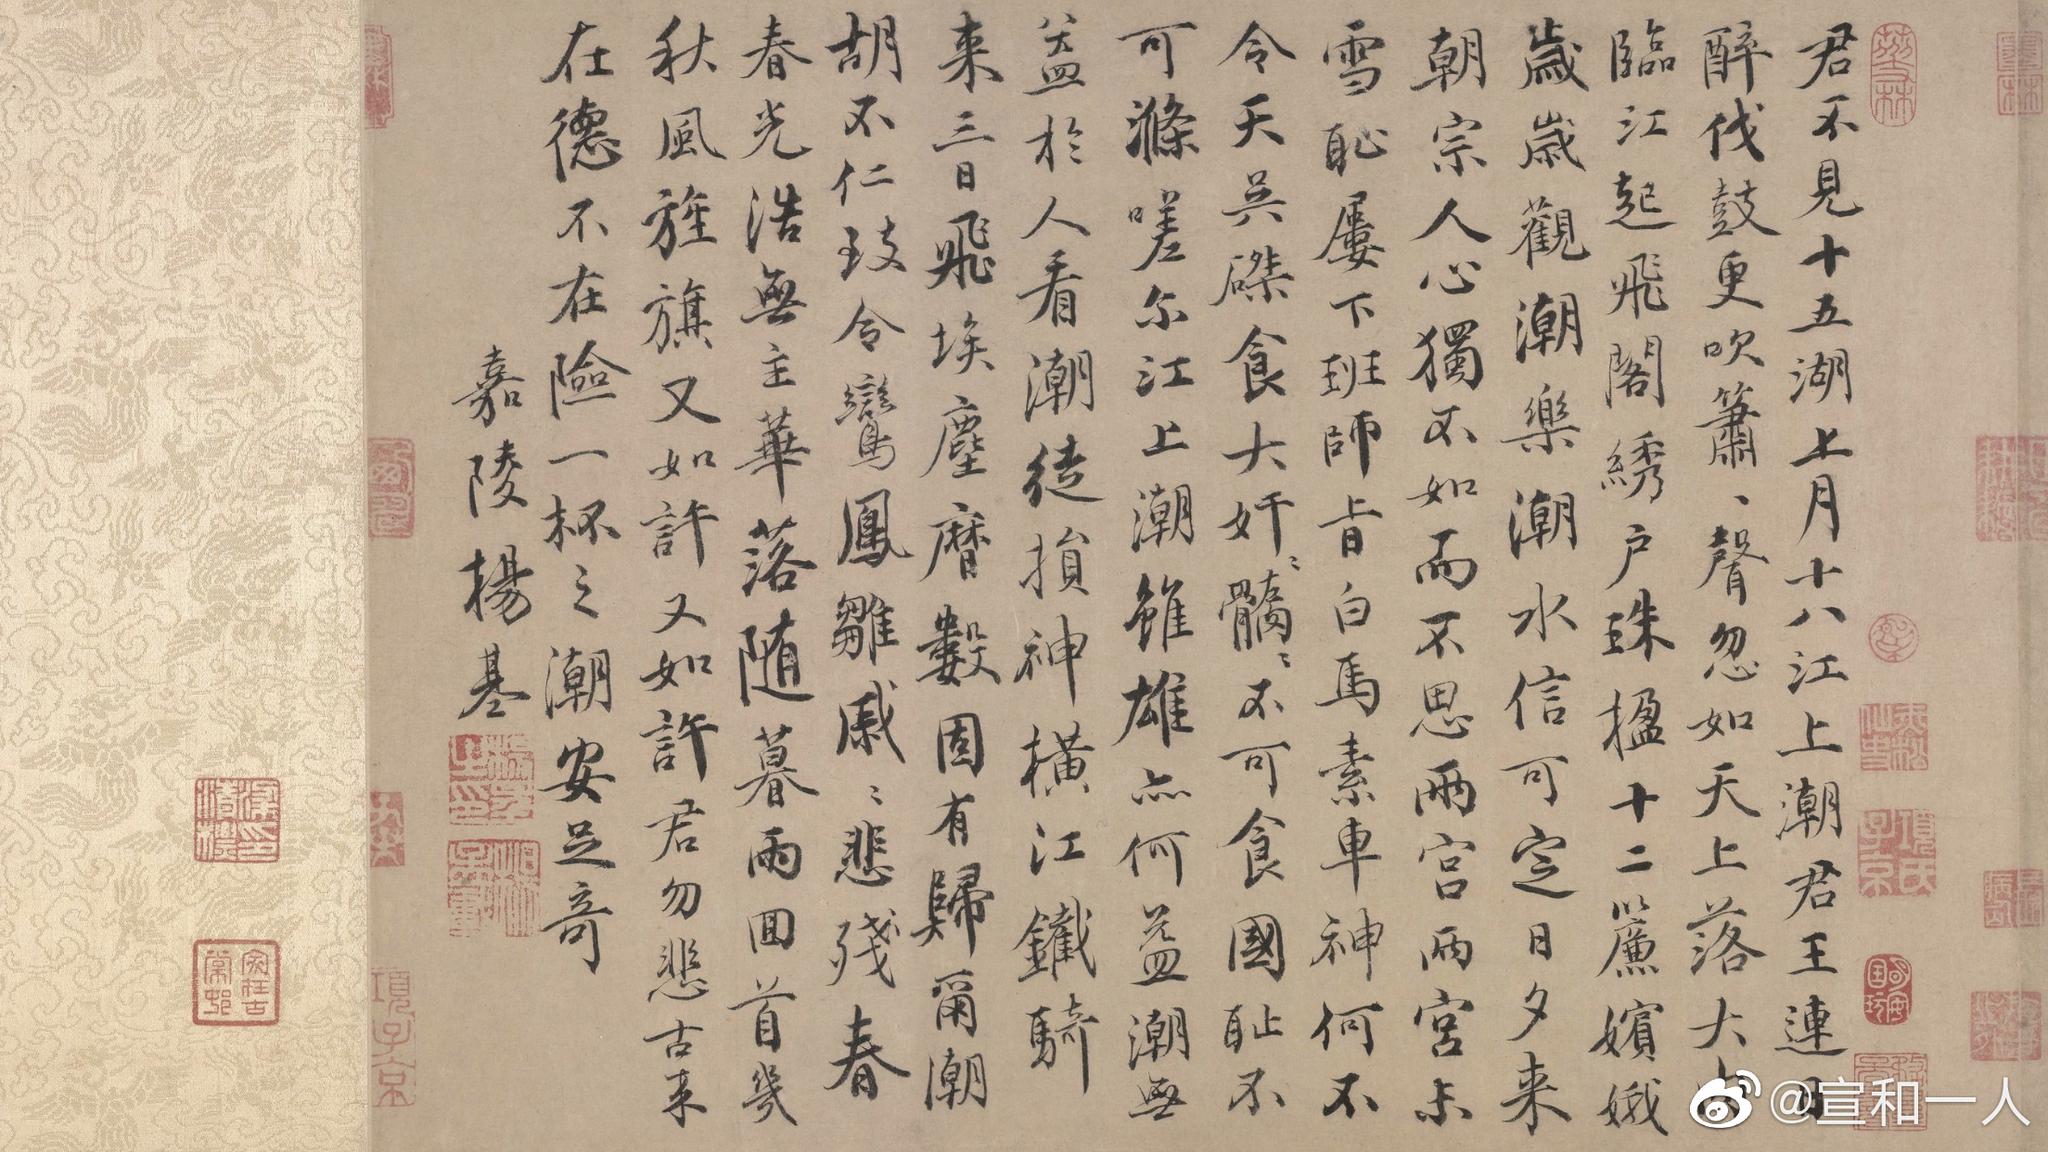 君不見十五湖上月十八江上潮君王連日
醉伐鼓更吹簫、聲忽如天上落大
臨江起飛閣綉戶珠楹十二簾嬪娥
歲歲觀潮樂潮水信可定日夕来
朝宗人心獨不如而不思兩宮兩宮未
雪恥屢下班師旨白馬素車神何不
令天吳磔食大奸〻髇〻不可食國恥不
可滌嗟尔江上潮雖雄亦何益潮無
益於人看潮徒損神橫江鐵騎
来三日飛埃塵曆數固有歸爾潮
胡不仁致令鸞鳳雛戚〻悲殘春
春光浩無主華落随暮雨回首幾
秋風旌旗又如許又如許君勿悲古来
在德不在險一杯之潮安足奇
嘉陵楊基
項子京
項氏子京
@宣和一人